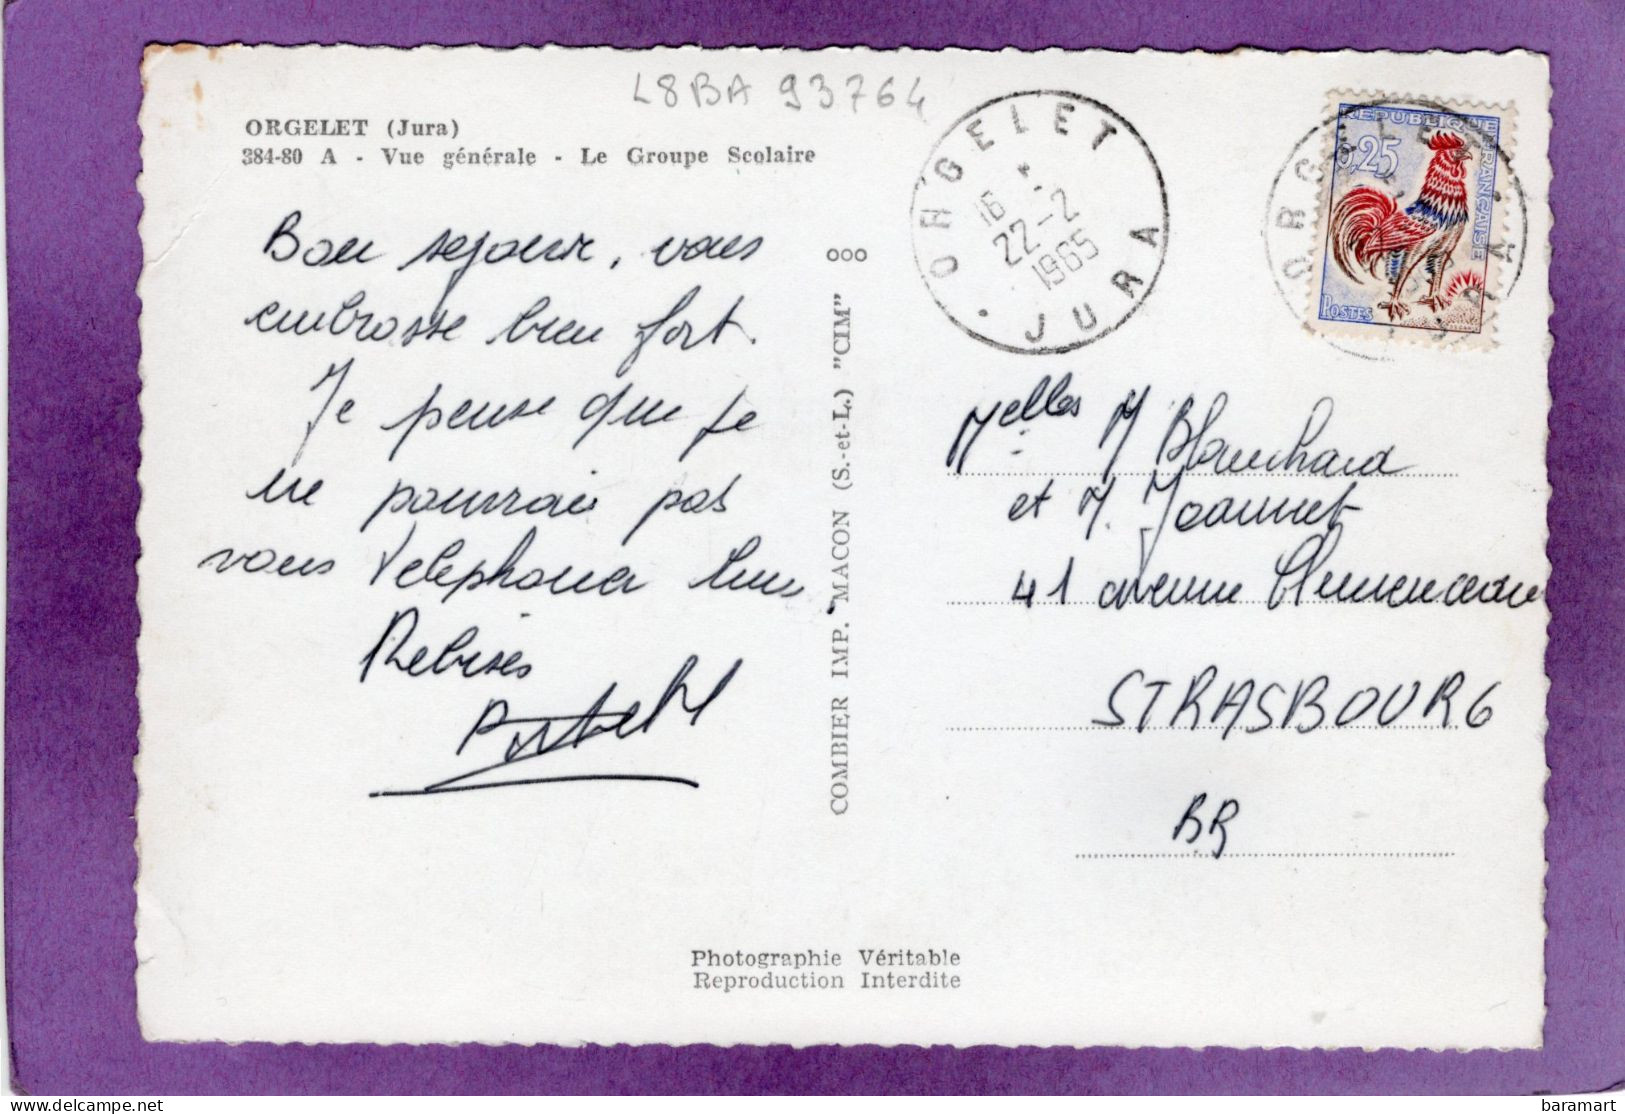 L8BA 93764
ORGELET (Jura)
384-80 A - Vue générale - Le Groupe Scolaire
Bon sejour, vous
embrasse bien fort.
Je pense que je
ne pourrai pas
vous telephoner
Bises
ooo
COMBIER IMP. MACON (S.-et-L.) "CIM"
ORGELET
16
22-2
1965
JURA
REPUBLIQUE FRANÇAISE
0,25
POSTES
ORGELET
JURA
Melles M Blanchard
et M. Joannet
41 avenue Clemenceau
STRASBOURG
BR
Photographie Véritable
Reproduction Interdite
delcampe.net
baramart